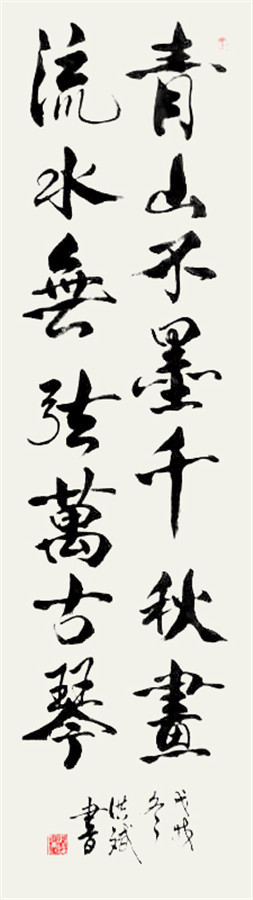 青山不墨千秋畫
流水無弦萬古琴
戊戌
冬
洪斌
書